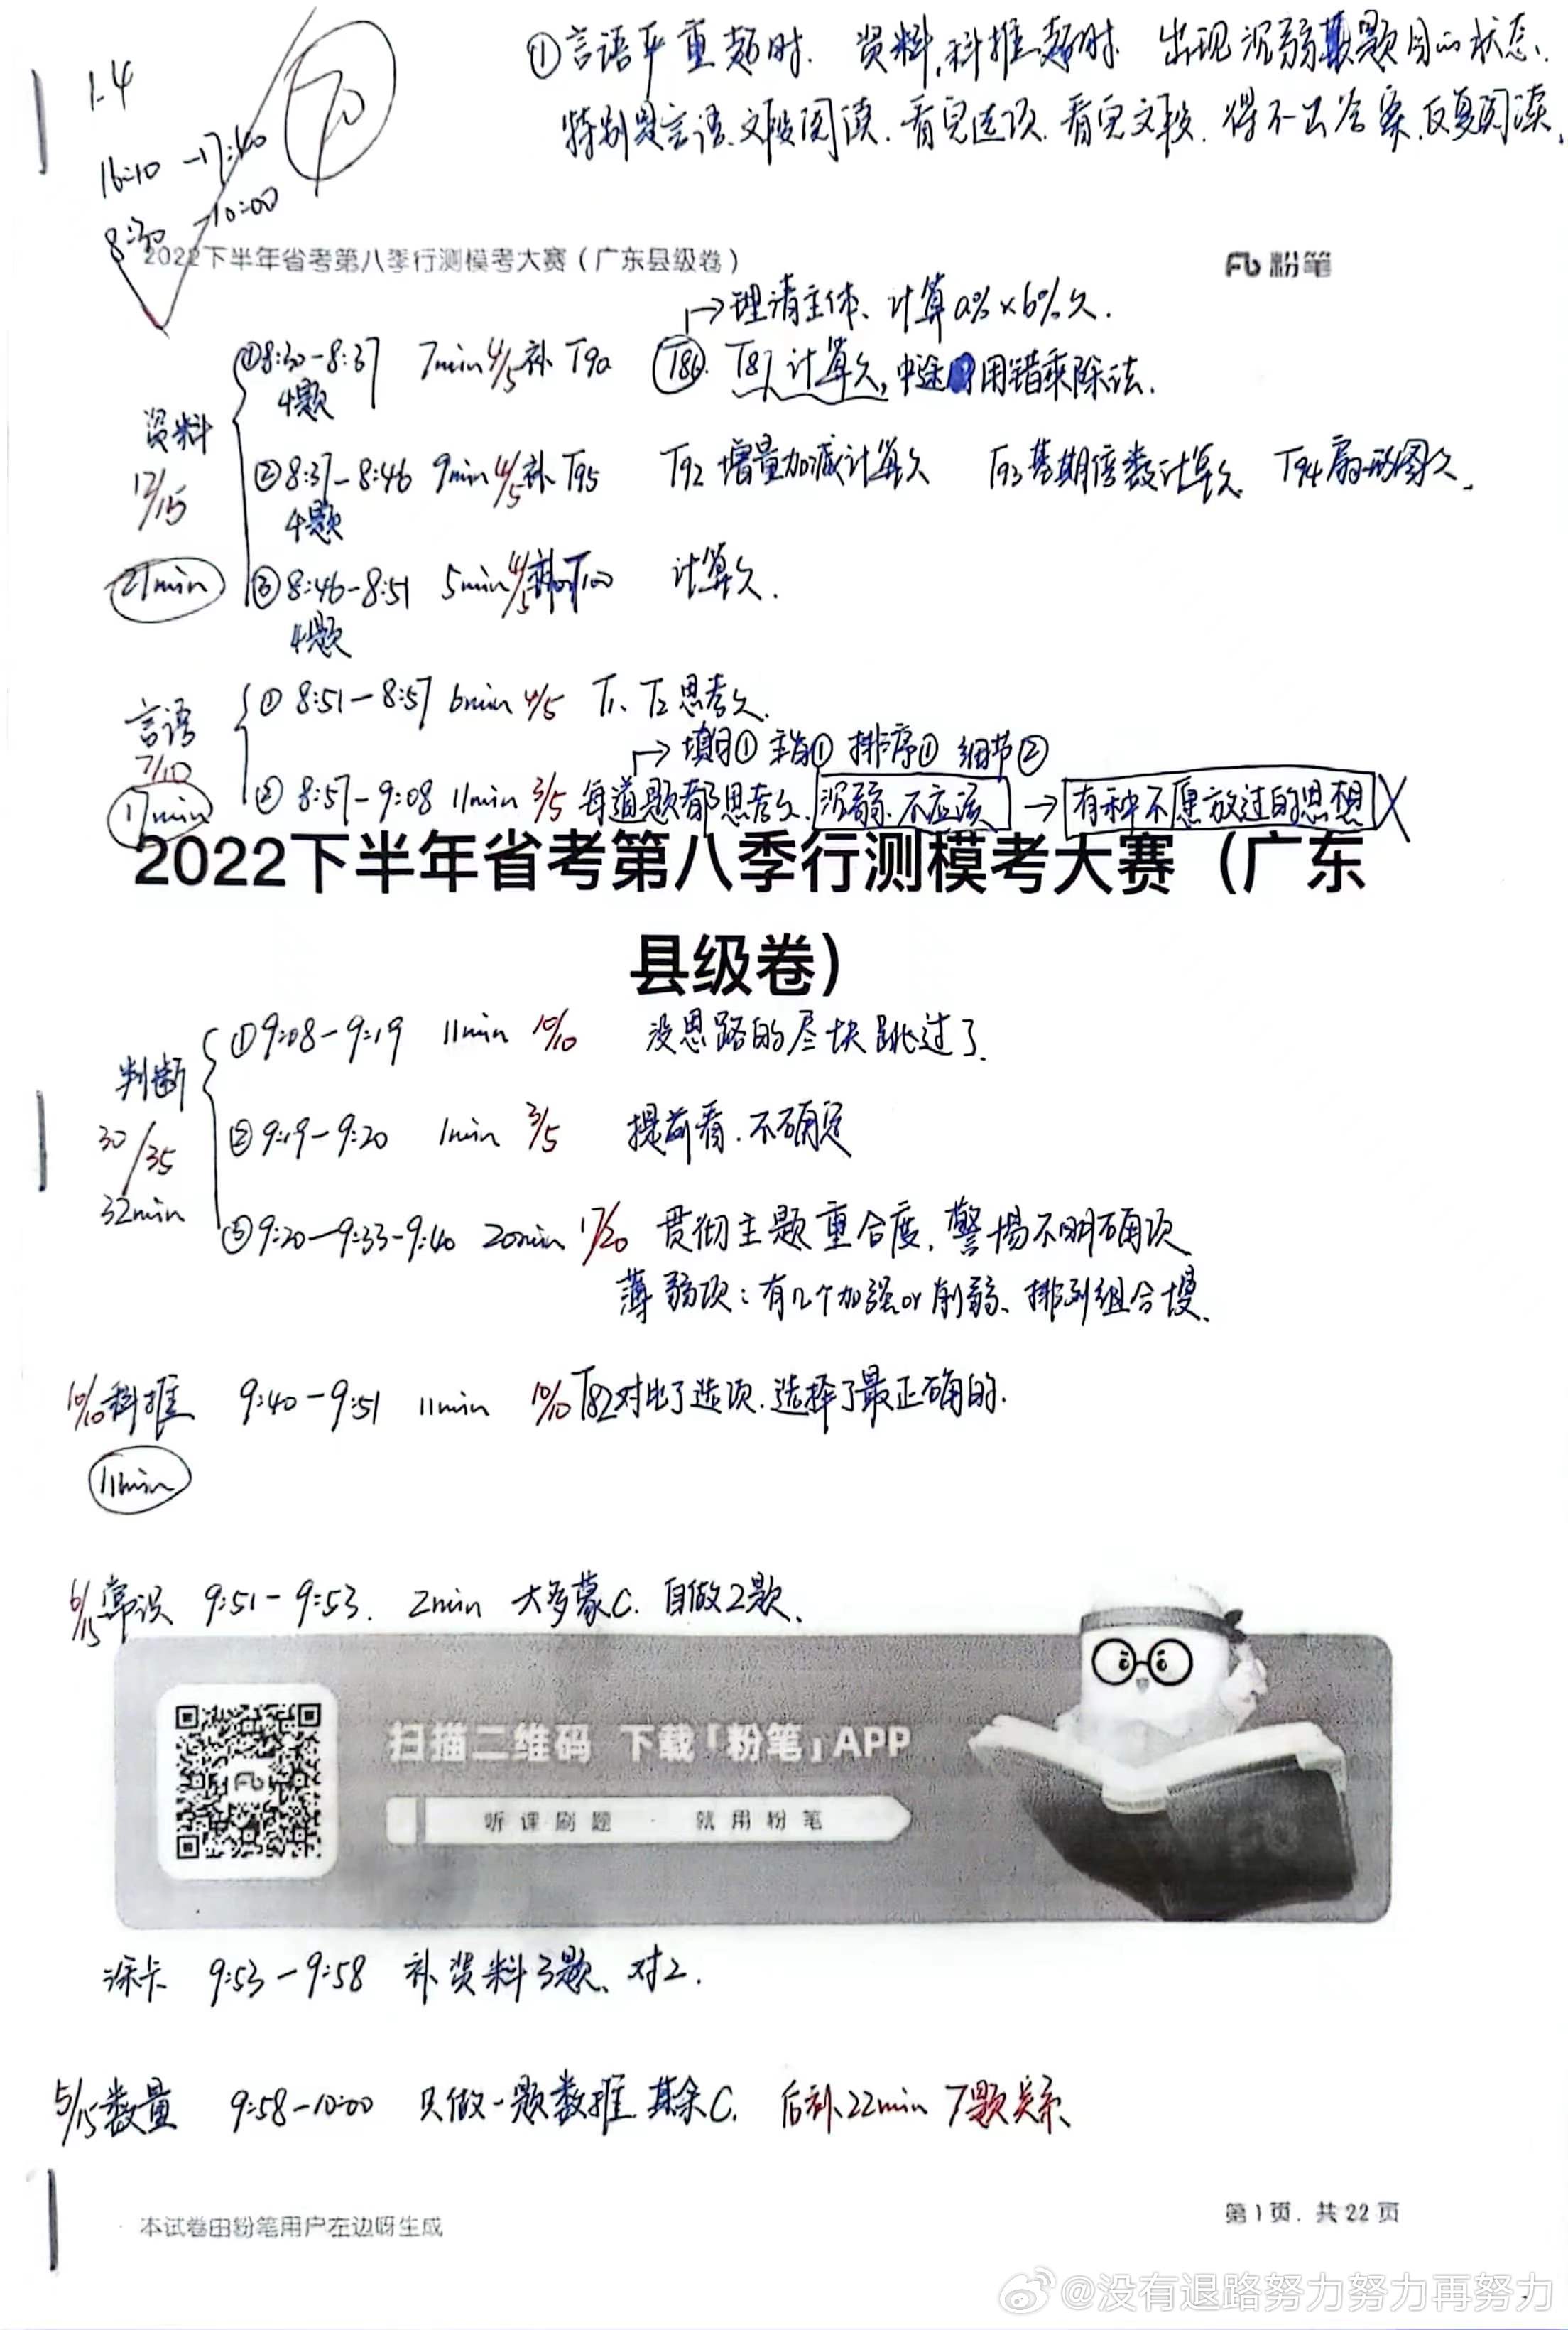 1.4
16:10-17:40
8:30-10:00
70
①言语严重超时. 资料,科推超时. 出现沉溺某题目的状态.
特别是言语.文段阅读.看完选项.看完文段.得不出答案.反复阅读.
2022下半年省考第八季行测模考大赛（广东县级卷）
粉笔
→理清主体、计算a%×b%久.
资料
12/15
21min
①8:30-8:37 7min 4/5 补T90 T86. T87计算久,中途用错乘除法.
4题
②8:37-8:46 9min 4/5 补T95 T92增量加减计算久 T93基期倍数计算久. T94扇形图久.
4题
③8:46-8:51 5min 4/5 补T100 计算久.
4题
言语
7/10
17min
①8:51-8:57 6min 4/5 T1、T2思考久.
→填句① 主旨① 排序① 细节②
②8:57-9:08 11min 3/5 每道题都思考久.沉溺.不应该→有种不愿放过的思想X
2022下半年省考第八季行测模考大赛（广东
县级卷）
判断
30/35
32min
①9:08-9:19 11min 10/10 没思路的尽快跳过了.
②9:19-9:20 1min 3/5 提前看.不确定
③9:20-9:33-9:40 20min 17/20 贯彻主题重合度,警惕不明确项
薄弱项:有几个加强or削弱、排列组合慢.
10/10科推 9:40-9:51 11min 10/10 T82对比了选项.选择了最正确的.
11min
6/15常识 9:51-9:53. 2min 大多蒙C.自做2题.
扫描二维码 下载「粉笔」APP
听课刷题 · 就用粉笔
涂卡 9:53-9:58 补资料3题、对2.
5/15数量 9:58-10:00 只做一题数推.其余C. 后补22min 7题关系
本试卷由粉笔用户在边呀生成
第1页，共22页
@没有退路努力努力再努力